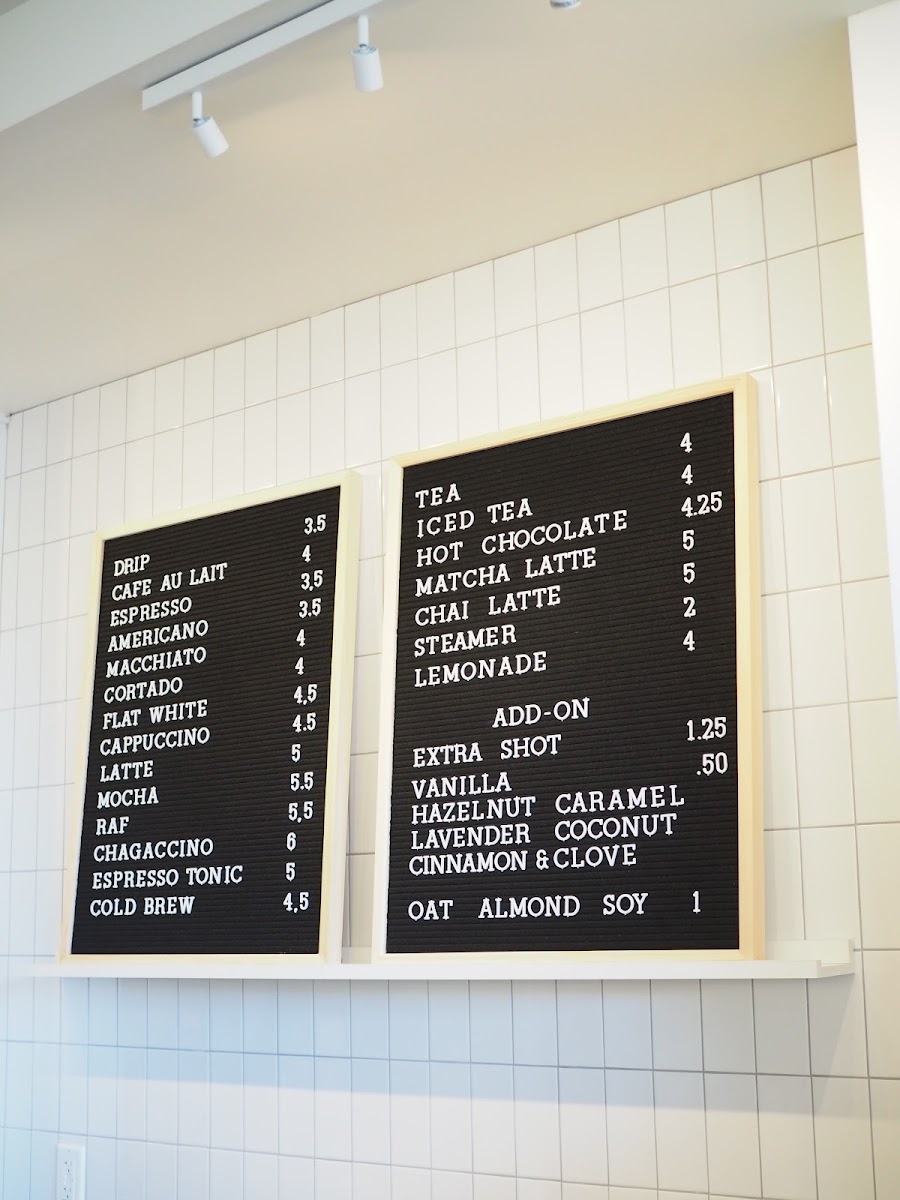 DRIP 3.5
CAFE AU LAIT 4
ESPRESSO 3.5
AMERICANO 3.5
MACCHIATO 4
CORTADO 4
FLAT WHITE 4.5
CAPPUCCINO 4.5
LATTE 5
MOCHA 5.5
RAF 5.5
CHAGACCINO 6
ESPRESSO TONIC 5
COLD BREW 4.5
TEA 4
ICED TEA 4
HOT CHOCOLATE 4.25
MATCHA LATTE 5
CHAI LATTE 5
STEAMER 2
LEMONADE 4
ADD-ON
EXTRA SHOT 1.25
VANILLA .50
HAZELNUT CARAMEL
LAVENDER COCONUT
CINNAMON & CLOVE
OAT ALMOND SOY 1